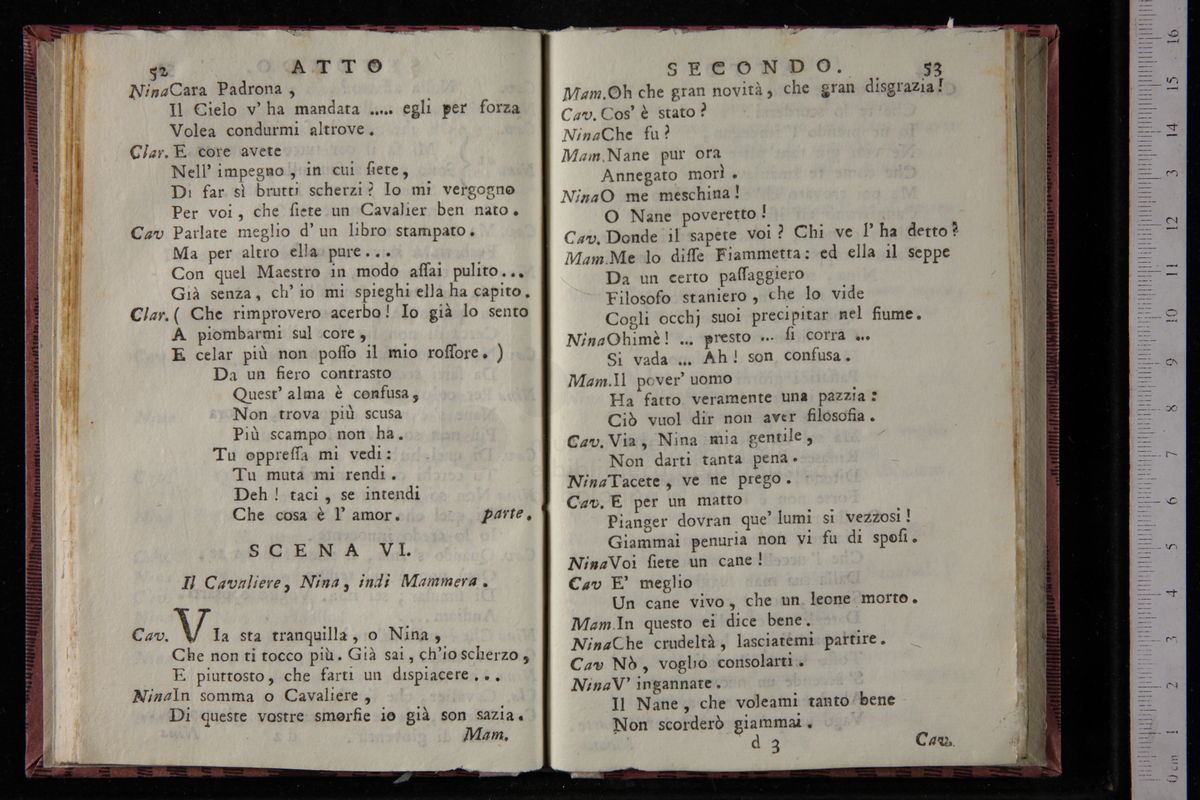 52 ATTO
Nina Cara Padrona ,
Il Cielo v' ha mandata ..... egli per forza
Volea condurmi altrove .
Clar. E core avete
Nell' impegno , in cui ſiete ,
Di far sì brutti scherzi ? Io mi vergogno
Per voi , che ſiete un Cavalier ben nato .
Cav Parlate meglio d' un libro stampato .
Ma per altro ella pure . . .
Con quel Maestro in modo aſſai pulito ...
Già senza , ch' io mi spieghi ella ha capito .
Clar. ( Che rimprovero acerbo ! Io già lo sento
A piombarmi sul core ,
E celar più non poſſo il mio roſſore . )
Da un fiero contrasto
Quest' alma è confusa ,
Non trova più scusa
Più scampo non ha .
Tu oppreſſa mi vedi :
Tu muta mi rendi .
Deh ! taci , se intendi
Che cosa è l' amor . parte .
SCENA VI.
Il Cavaliere , Nina , indi Mammera .
Cav. VIa sta tranquilla , o Nina ,
Che non ti tocco più . Già sai , ch'io scherzo ,
E piuttosto , che farti un dispiacere . . .
Nina In somma o Cavaliere ,
Di queste vostre smorfie io già son sazia .
Mam.
SECONDO. 53
Mam. Oh che gran novità , che gran disgrazia !
Cav. Cos' è stato ?
Nina Che fu ?
Mam. Nane pur ora
Annegato morì .
Nina O me meschina !
O Nane poveretto !
Cav. Donde il sapete voi ? Chi ve l' ha detto ?
Mam. Me lo diſſe Fiammetta : ed ella il seppe
Da un certo paſſaggiero
Filosofo staniero , che lo vide
Cogli occhj suoi precipitar nel fiume .
Nina Ohimè ! ... presto ... ſi corra ...
Si vada ... Ah ! son confusa .
Mam. Il pover' uomo
Ha fatto veramente una pazzia :
Ciò vuol dir non aver filosofia .
Cav. Via , Nina mia gentile ,
Non darti tanta pena .
Nina Tacete , ve ne prego .
Cav. E per un matto
Pianger dovran que' lumi sì vezzosi !
Giammai penuria non vi fu di spoſi .
Nina Voi ſiete un cane !
Cav E' meglio
Un cane vivo , che un leone morto .
Mam. In questo ei dice bene .
Nina Che crudeltà , lasciatemi partire .
Cav Nò , voglio consolarti .
Nina V' ingannate .
Il Nane , che voleami tanto bene
Non scorderò giammai .
d 3 Cav.